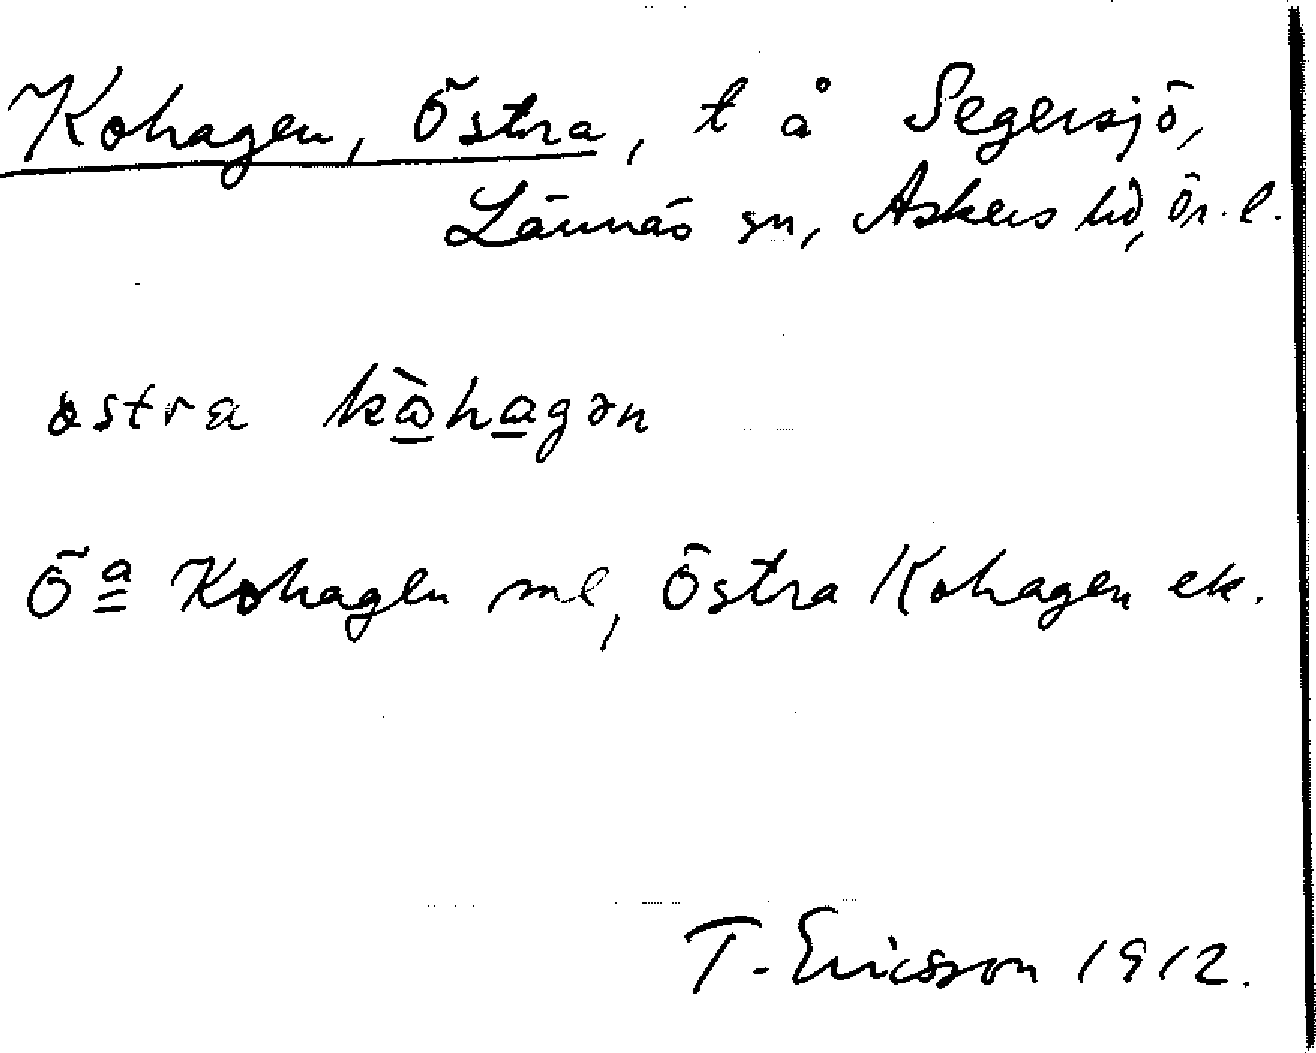 Kohagen, Östra, t å Segersjö,
Lännäs sn, Askers hd, Ör. l.
östra kò̲ha̲gən
Öª Kohagen me, Östra Kohagen ek.
T. Ericsson 1912.